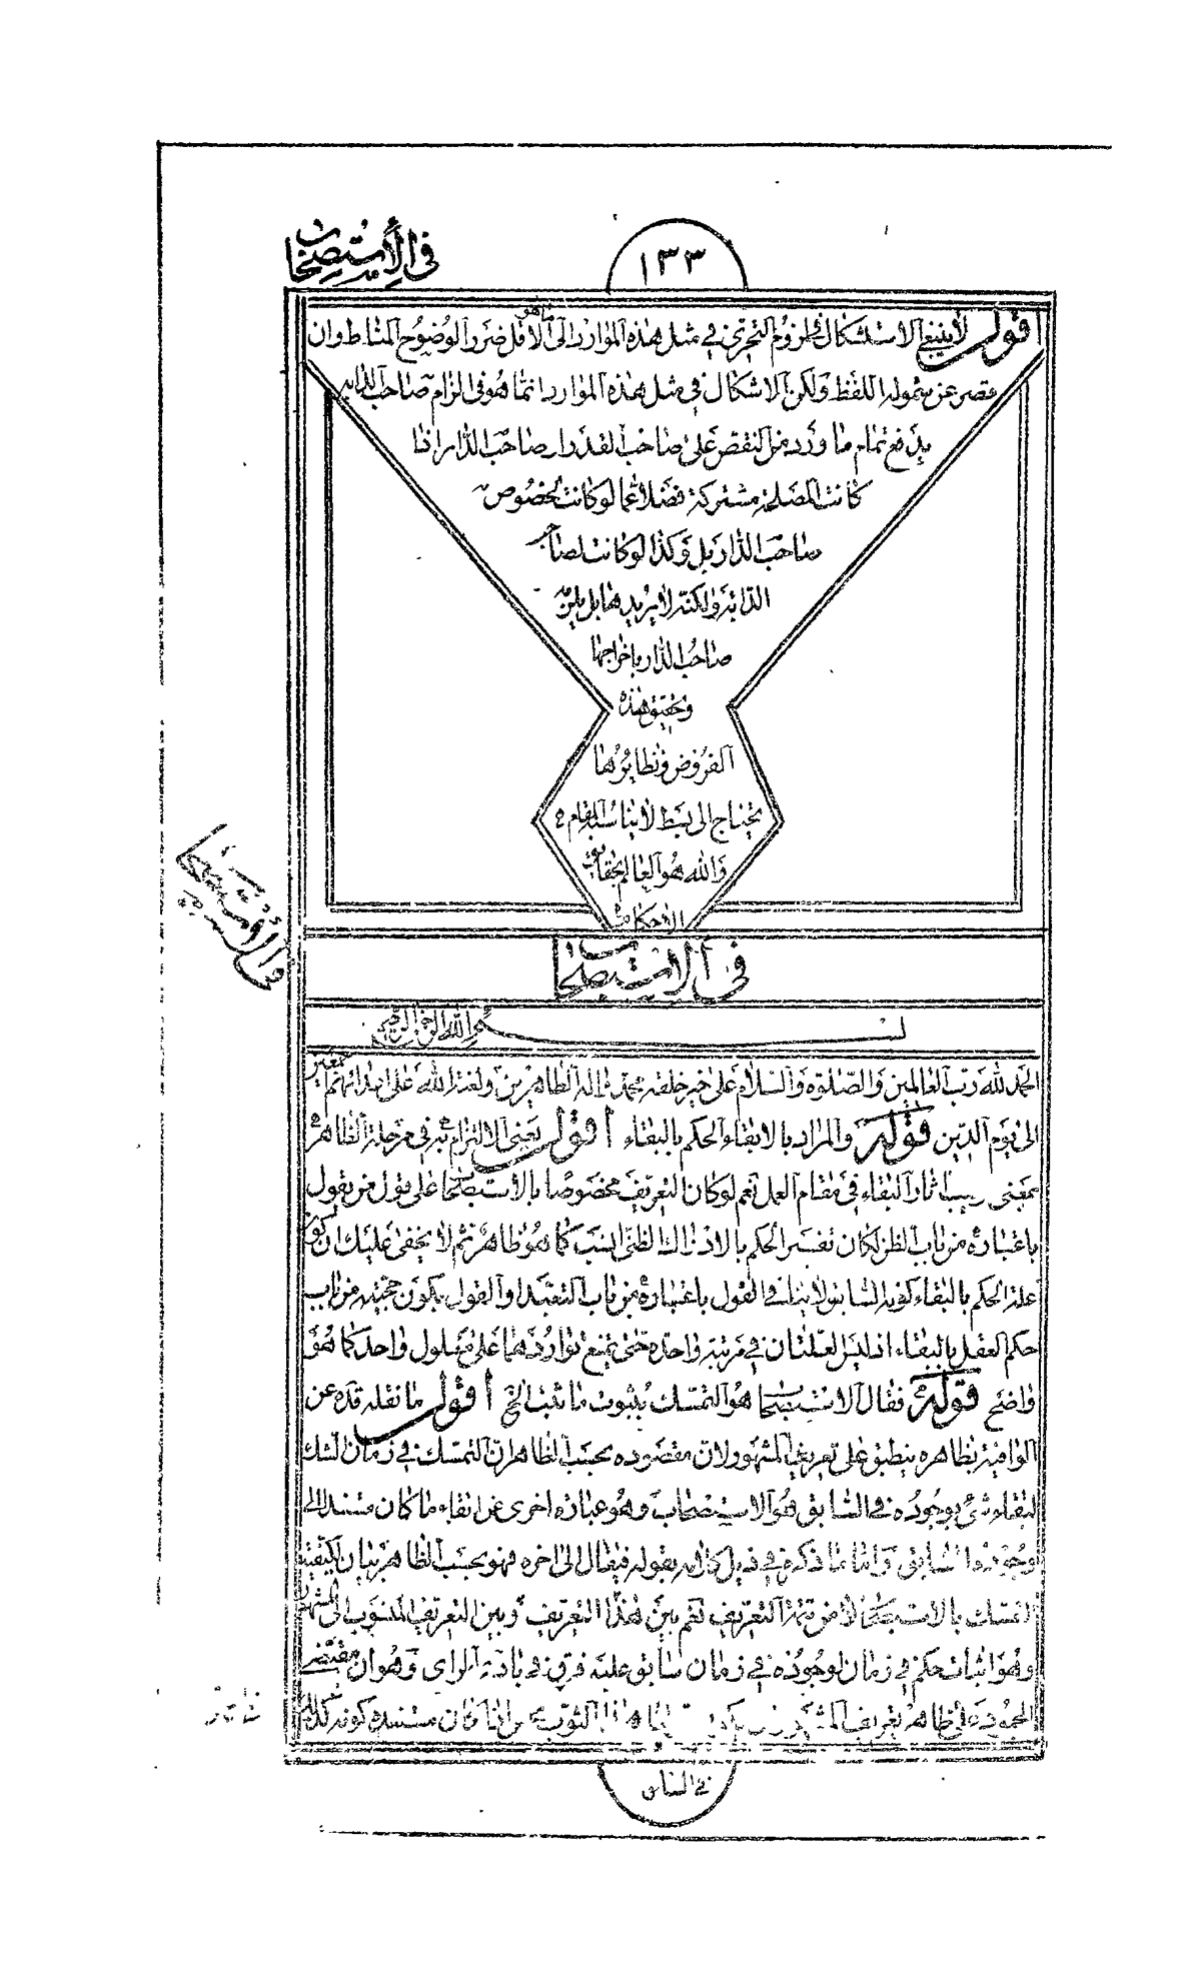 في الاستصحاب
١٣٣
اقول لا ينبغي الاستشكال في لزوم التحرى في مثل هذه الموارد الى ما هو الاقل ضررا لوضوح المناط وان
قصر عن شموله اللفظ ولكن الاشكال في مثل هذه الموارد انما هو في الزام صاحب الدابه
بدفع تمام ما ورد من النقص على صاحب القدر او صاحب الدار اذا
كانت المصلحة مشتركة فضلا عما لو كانت لخصوص
صاحب الدار بل وكذا لو كانت لصاحب
الدابة ولكنه لا يريدها بل يلزمه
صاحب الدار باخراجها
وتحقيق هذه
الفروض ونظائرها
يحتاج الى بسط لا يناسبه المقام
والله هو العالم بحقايق
الاحكام
في الاستصحاب
بسم الله الرحمن الرحيم
الحمد لله رب العالمين والصلوة والسلام على خير خلقه محمد واله الطاهرين ولعنة الله على اعدائهم اجمعين
الى يوم الدين قوله والمراد بالابقاء الحكم بالبقاء اقول يعنى الالتزام به في مرحلة الظاهر
بمعنى ترتيب اثار البقاء في مقام العمل نعم لو كان التعريف مخصوصا بالاستصحاب على قول من يقول
باعتباره من باب الظن لكان تفسير الحكم بالادراك الظنى انسب كما هو ظاهر ثم لا يخفى عليك ان كون
علة الحكم بالبقاء كونه في السابق لا ينافي القول باعتباره من باب التعبد او القول بكون حجيته من باب
حكم العقل بالبقاء اذ ليس العلتان في مرتبة واحدة حتى يمتنع تواردهما على معلول واحد كما هو
واضح قوله فقال الاستصحاب هو التمسك بثبوت ما ثبت الخ اقول ما نقله قده عن
الوافية بظاهره ينطبق على تعريف المشهور لان مقصوده بحسب الظاهر ان التمسك في زمان الشك
لبقاء شئ بوجوده في السابق هو الاستصحاب وهو عبارة اخرى عن ابقاء ما كان مستندا الى
وجوده السابق واما ما ذكره في ذيل كلامه بقوله فيقال الى اخره فهو بحسب الظاهر بيان لكيفية
التمسك بالاستصحاب لا من تتمة التعريف نعم بين هذا التعريف وبين التعريف المنسوب الى المشهور
وهو اثبات حكم في زمان لوجوده في زمان سابق عليه فرق في بادئ الراى وهو ان مقتضى
الجمود على ظاهر تعريف المشهور ان يكون الثبوت مستنده كونه كذلك
في السابق